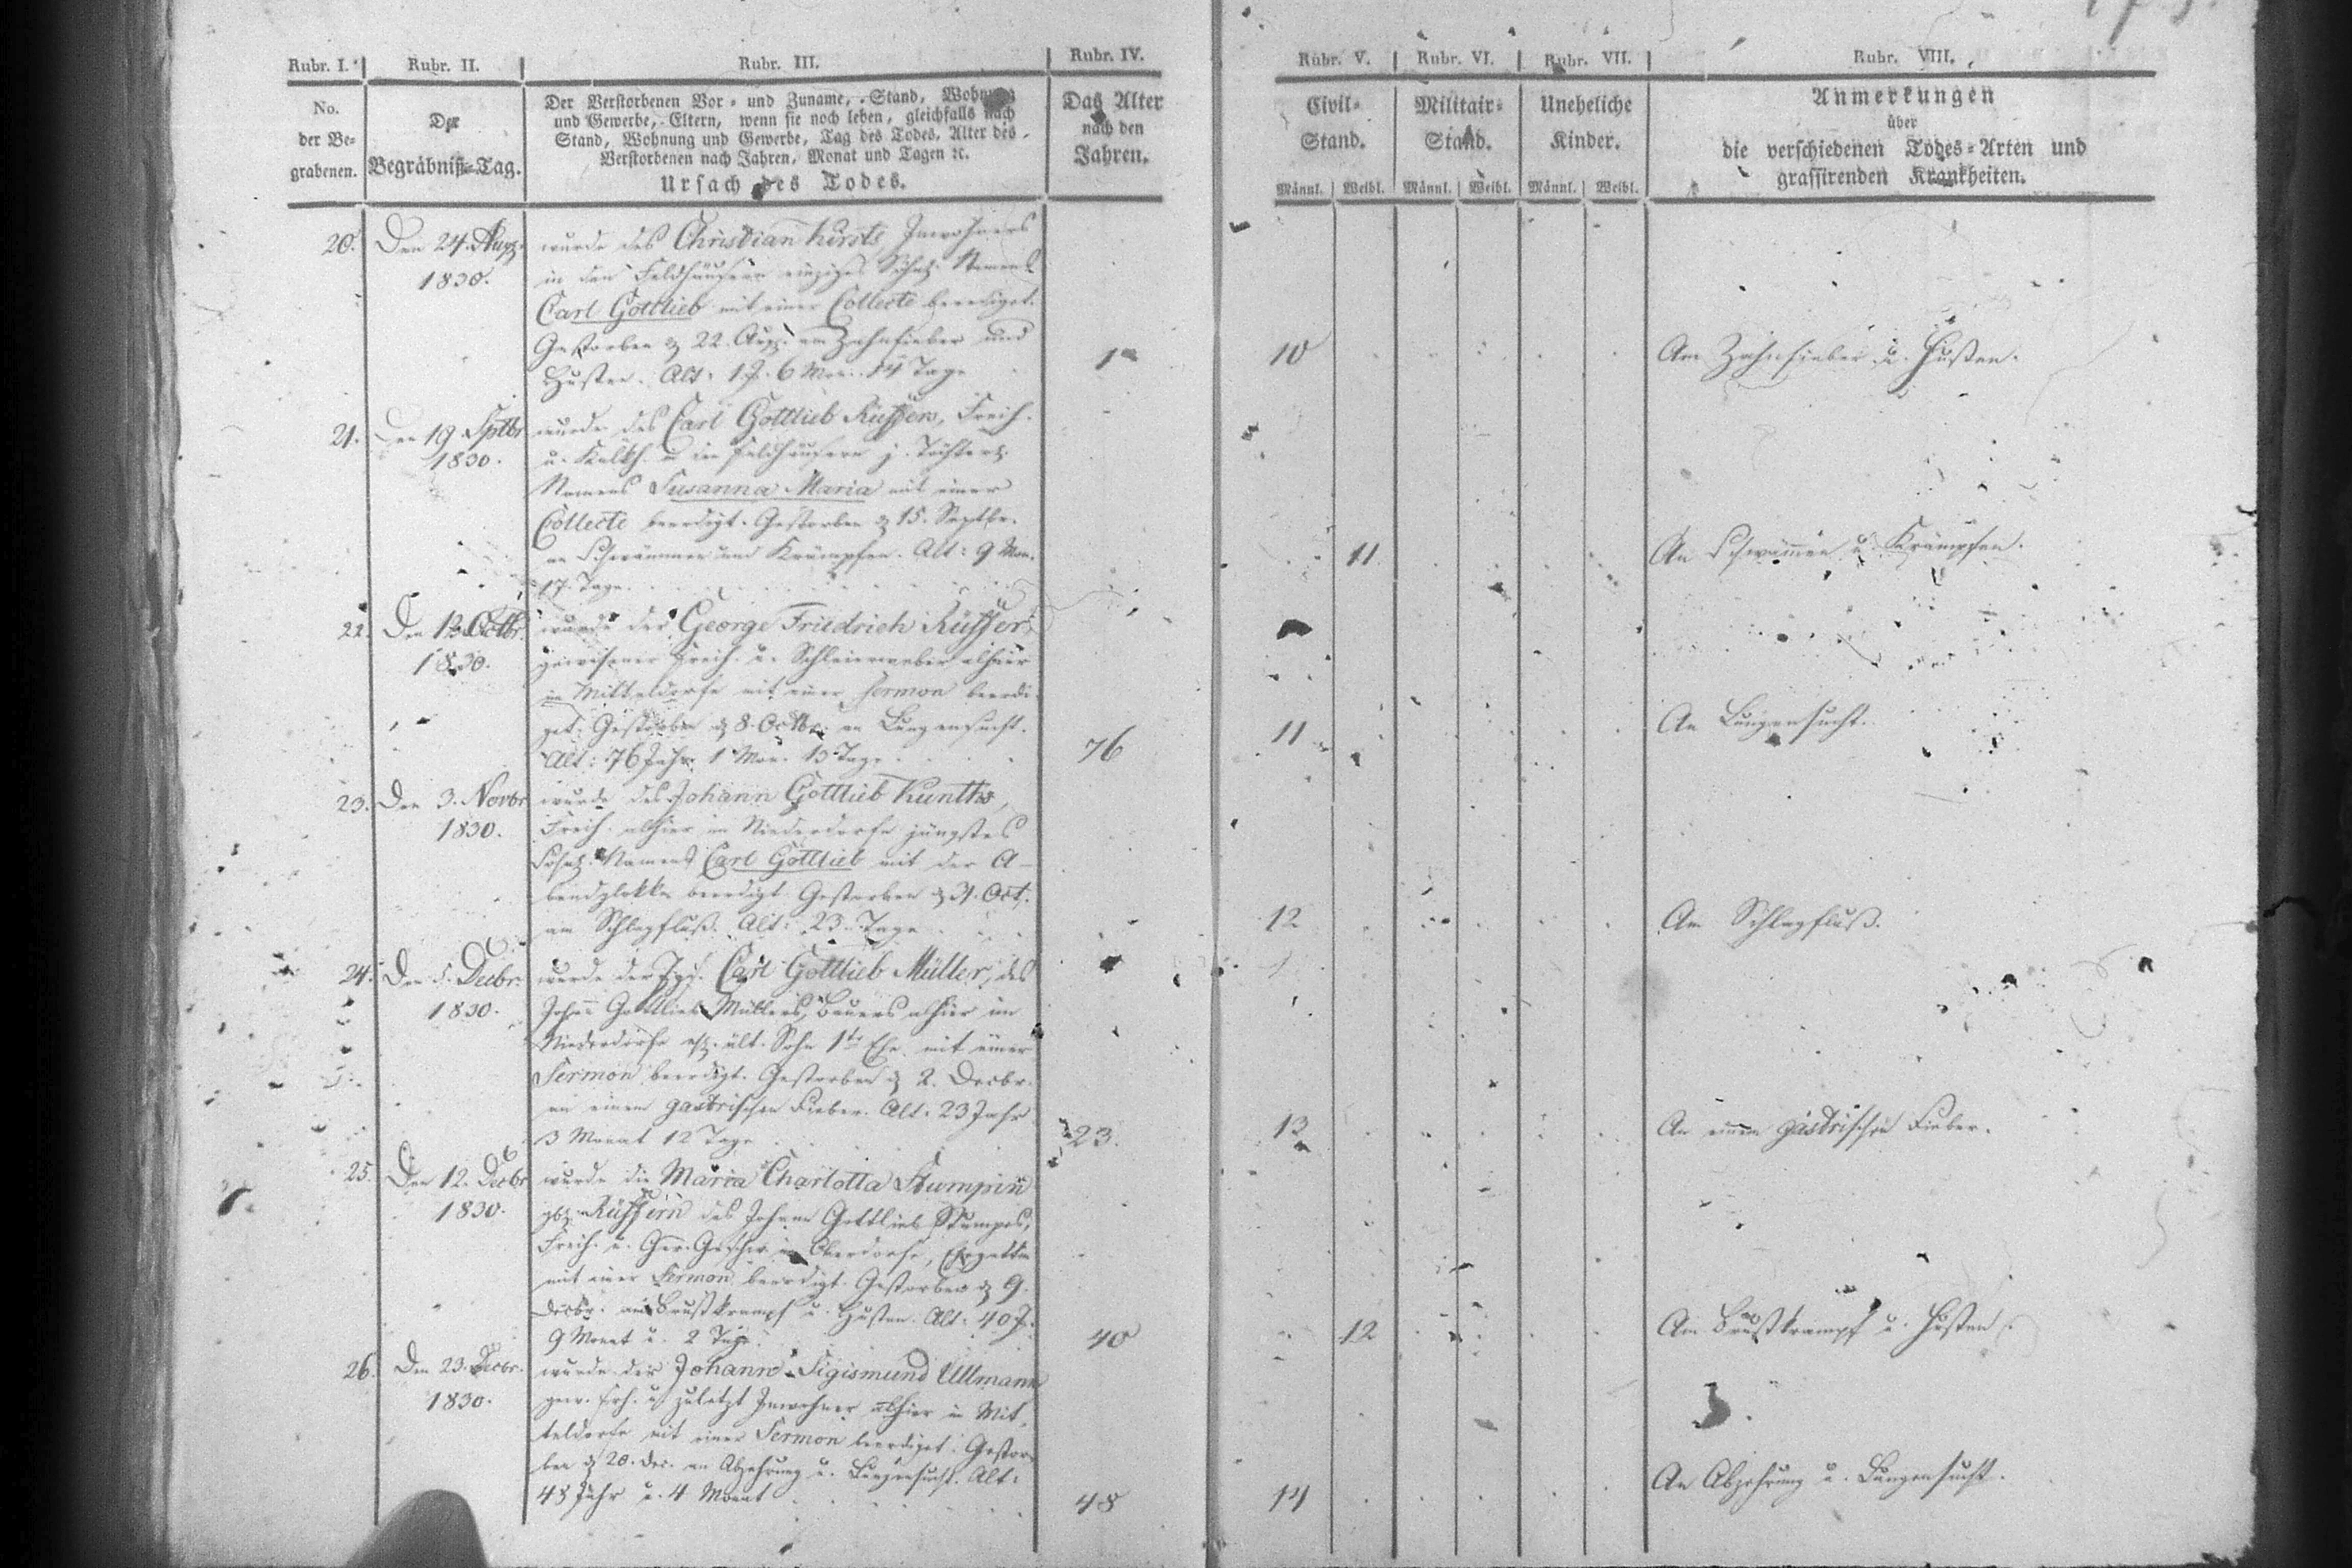 Rubr. I. Rubr. II. Rubr. III. Rubr. IV. Rubr. V. Rubr. VI. Rubr. VII. Rubr. VIII.
No.
der Be-
grabenen.
Der
Begräbniß-Tag.
Der Verstorbenen Vor- und Zuname, Stand, Wohnung
und Gewerbe, Eltern, wenn sie noch leben, gleichfalls nach
Stand, Wohnung und Gewerbe, Tag des Todes, Alter des
Verstorbenen nach Jahren, Monat und Tagen ꝛc.
Ursach des Todes.
Das Alter
nach den
Jahren.
Civil-
Stand.
Männl. Weibl.
Militair-
Stand.
Männl. Weibl.
Uneheliche
Kinder.
Männl. Weibl.
Anmerkungen
über
die verschiedenen Todes-Arten und
grassirenden Krankheiten.
20. Den 24. Aug.
1830.
wurde des Christian Inwohners
in den Feldhäusern einziges Namens
Carl Gottlieb mit einer Collecte beerdiget.
Gestorben 22. Aug. am Zahnfieber und
Husten. Alt: 1 J. 6 Mon. 14 Tage
1
10
Am Zahnfieber u. Husten.
21. Den 19. Sptbr
1830.
wurde des Carl Gottlieb Freih.
u. in Feldhäusern j.
Namens Susanna Maria mit einer
Collecte beerdigt. Gestorben 15. Septbr.
an Schwämmen und Krämpfen. Alt: 9 Mon.
17. Tage.
11
An Schwämmen u. Krämpfen.
22. Den
1830.
wurde der George Friedrich Rüffer,
gewesener Freih. u. Schleierweber alhier
in Mitteldorfe mit einer Sermon beerdi-
get. Gestorben 8. Octbr. an Lungensucht.
Alt: 76 Jahr 1 Mon. 13 Tage
76
11
An Lungensucht.
23. Den 3. Novbr
1830.
wurde des Johann Gottlieb
Freih. alhier im Niederdorfe jüngstes
Namens Carl Gottlieb mit der A-
bendglokke beerdigt. Gestorben 31. Oct.
am Schlagfluß. Alt: 23. Tage
12
Am Schlagfluß.
24. Den 5. Decbr.
1830.
wurde der Jgs. Carl Gottlieb Müller, des
Johann Gottlieb Müllers, Bauers alhier im
Niederdorfe ält. Sohn 1ter Ehe mit einer
Sermon beerdigt. Gestorben 2. Decbr.
an einem gastrischen Fieber. Alt: 23 Jahr
3 Monat 12 Tage
23.
13
An einem gastrischen Fieber.
25. Den 12. Decbr
1830.
wurde die Maria Charlotta Stumpin
Rüfferin des Johann Gottlieb Stumpes,
Freih. u. im Oberdorfe, Ehegattin
mit einer Sermon beerdigt. Gestorben 9.
Decbr. am Brustkrampf u. Husten. Alt: 40 J.
9 Monat u. 2 Tage.
40
12
Am Brustkrampf u. Husten.
26. Den 23. Decbr.
1830.
wurde der Johann Sigismund Ullmann
gew. Frh. u. zuletzt Inwohner alhier in Mit-
teldorfe mit einer Sermon beerdiget. Gestor-
ben 20. Dec. an Abzehrung u. Lungensucht. Alt:
48 Jahr u. 4 Monat
48
14
An Abzehrung u. Lungensucht.